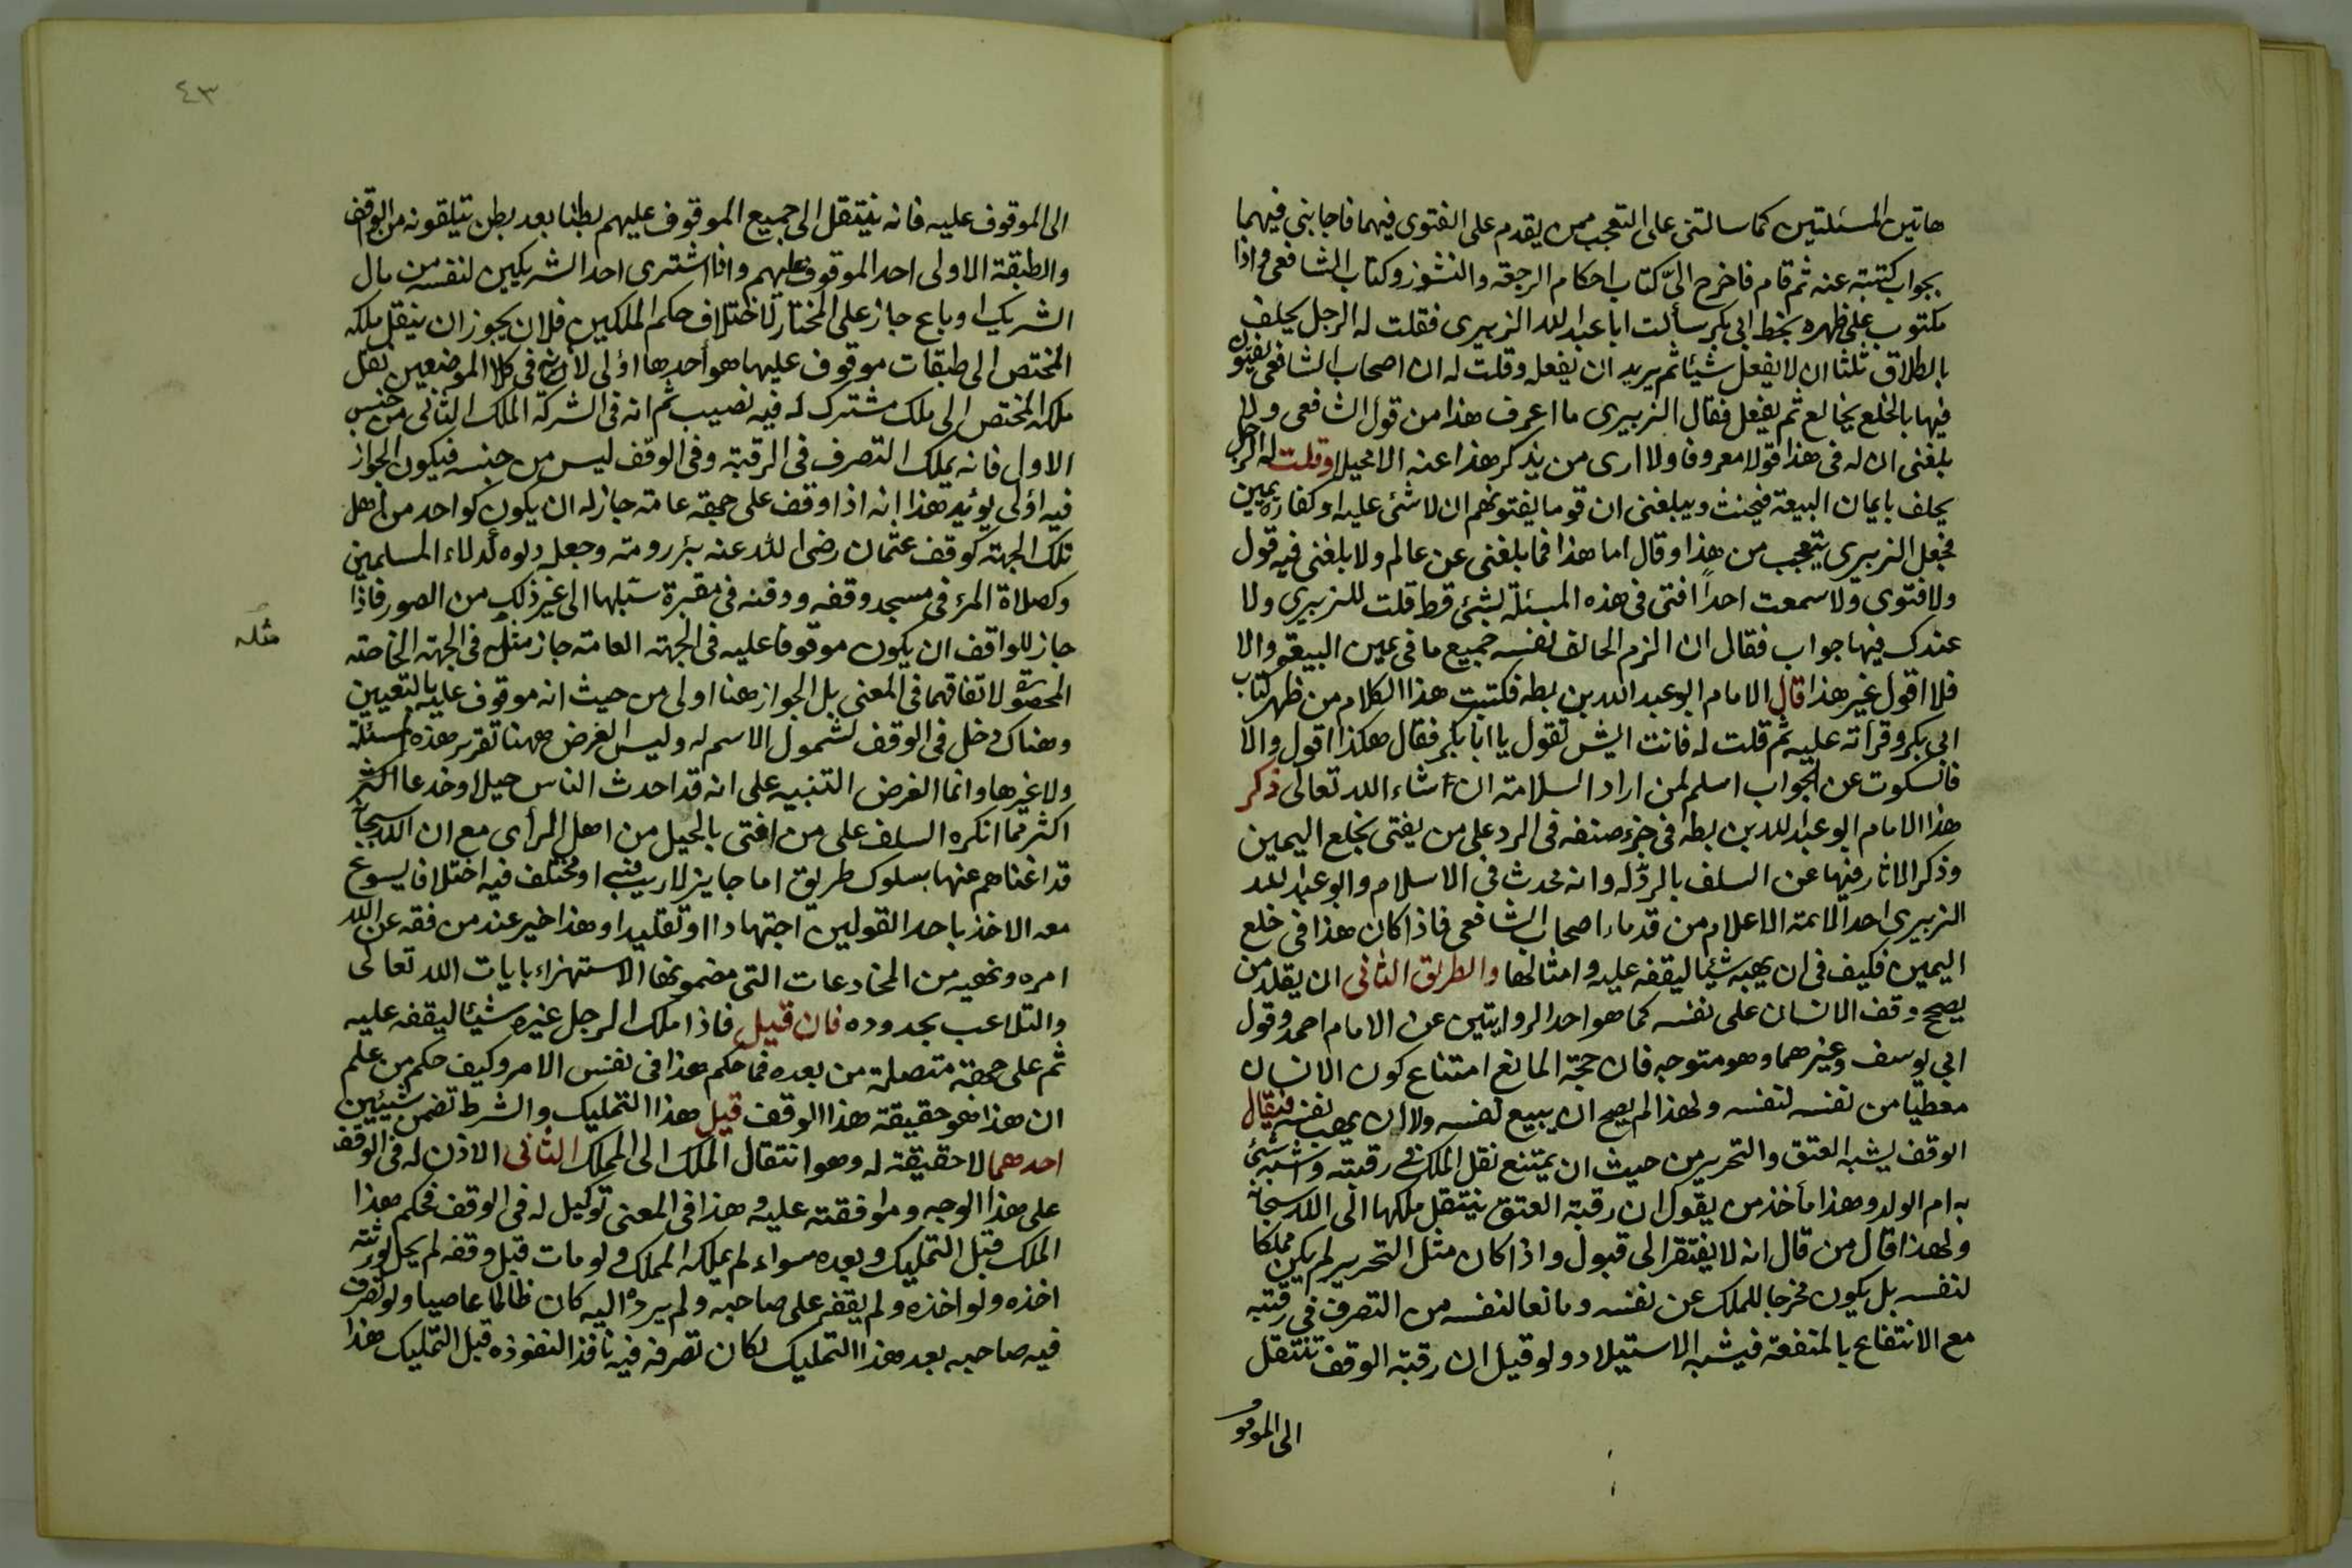 هاتين المسئلتين كما سالتنى على التعجب ممن يقدم على الفتوى فيهما فاجابنى فيهما
بجواب كتبته عنه ثم قام فاخرج الىّ كتاب احكام الرجعة والنشوز وكتاب الشافعى واذا
مكتوب على ظهره بخط ابى بكر سألت ابا عبد الله الزبيرى فقلت له الرجل يحلف
بالطلاق ثلثا ان لا يفعل شيئا ثم يريد ان يفعله وقلت له ان اصحاب الشافعى يفتون
فيها بالخلع يخالع ثم يفعل فقال الزبيرى ما اعرف هذا من قول الشافعى ولا
بلغنى ان له فى هذا قولا معروفا ولا ارى من يذكر هذا عنه الا محيلا وقلت له الرجل
يحلف بايمان البيعة فيحنث ويبلغنى ان قوما يفتونهم ان لا شئ عليه او كفارة يمين
فجعل الزبيرى يتعجب من هذا وقال اما هذا فما بلغنى عن عالم ولا بلغنى فيه قول
ولا فتوى ولا سمعت احداً افتى فى هذه المسئلة بشئ قط قلت للزبيرى ولا
عندك فيها جواب فقال ان الزم الحالف نفسه جميع ما فى يمين البيعة والا
فلا اقول غير هذا قال الامام ابو عبد الله بن بطه فكتبت هذا الكلام من ظهر كتاب
ابى بكر وقراته عليه ثم قلت له فانت ايش تقول يا ابا بكر فقال هكذا اقول والا
فالسكوت عن الجواب اسلم لمن اراد السلامة ان شاء الله تعالى ذكر
هذا الامام ابو عبد الله بن بطه فى جزء صنفه فى الرد على من يفتى بخلع اليمين
وذكر الاثار فيها عن السلف بالرد له وانه محدث فى الاسلام وابو عبد الله
الزبيرى احد الائمة الاعلام من قدماء اصحاب الشافعى فاذا كان هذا فى خلع
اليمين فكيف فى ان يهبه شيئا ليقفه عليه وامثالها والطريق الثانى ان يقلد من
يصحح وقف الانسان على نفسه كما هو احد الروايتين عن الامام احمد وقول
ابى يوسف وغيرهما وهو متوجه فان حجة المانع امتناع كون الانسان
معطيا من نفسه لنفسه ولهذا لم يصح ان يبيع نفسه ولا ان يهب نفسه فيقال
الوقف يشبه العتق والتحرير من حيث ان يمتنع نقل الملك فى رقبته واشبه شئ
به ام الولد وهذا مأخذ من يقول ان رقبة العتق ينتقل ملكها الى الله سبحانه
ولهذا قال من قال انه لا يفتقر الى قبول واذا كان مثل التحرير لم يكن مملكا
لنفسه بل يكون مخرجا للملك عن نفسه ومانعا لنفسه من التصرف فى رقبته
مع الانتفاع بالمنفعة فيشبه الاستيلاد ولو قيل ان رقبة الوقف تنتقل
الى الموقو
٤٣
الى الموقوف عليه فانه ينتقل الى جميع الموقوف عليهم بطنا بعد بطن يتلقونه من الواقف
والطبقة الاولى احد الموقوف عليهم واذا اشترى احد الشريكين لنفسه من مال
الشريك او باع جاز على المختار لاختلاف حكم الملكين فلان يجوز ان ينقل ملكه
المختص الى طبقات موقوف عليها هو احدها اولى لانه فى كلا الموضعين نقل
ملكه المختص الى ملك مشترك له فيه نصيب ثم انه فى الشركة الملك الثانى من جنس
الاول فانه يملك التصرف فى الرقبة وفى الوقف ليس من جنسه فيكون الجواز
فيه اولى يؤيد هذا انه اذا وقف على جهة عامة جاز له ان يكون كواحد من اهل
تلك الجهة كوقف عثمان رضى الله عنه بئر رومة وجعل دلوه كدلاء المسلمين
وكصلاة المرء فى مسجد وقفه ودفنه فى مقبرة سبلها الى غير ذلك من الصور فاذا
جاز للواقف ان يكون موقوفا عليه فى الجهة العامة جاز مثله فى الجهة الخاصة
مثله
المحصورة لاتفاقهما فى المعنى بل الجواز هنا اولى من حيث انه موقوف عليه بالتعيين
وهناك دخل فى الوقف لشمول الاسم له وليس الغرض ههنا تقرير هذه المسئلة
ولا غيرها وانما الغرض التنبيه على انه قد احدث الناس حيلا وخدعا اكثر
اكثر مما انكره السلف على من افتى بالحيل من اهل الرأى مع ان الله سبحانه
قد اغناهم عنها بسلوك طريق اما جايز لا ريب فيه او مختلف فيه اختلافا يسوغ
معه الاخذ باحد القولين اجتهادا او تقليدا وهذا خير عند من فقه عن الله
امره ونهيه من المخادعات التى مضمونها الاستهزاء بايات الله تعالى
والتلاعب بحدوده فان قيل فاذا ملك الرجل غيره شيئا ليقفه عليه
ثم على جهة متصلة من بعده فما حكم هذا فى نفس الامر وكيف حكم من علم
ان هذا هو حقيقة هذا الوقف قيل هذا التمليك والشرط تضمن شيئين
احدهما لا حقيقة له وهو انتقال الملك الى المملك الثانى الاذن له فى الوقف
على هذا الوجه وموافقته عليه وهذا فى المعنى توكيل له فى الوقف فحكم هذا
الملك قبل التمليك وبعده سواء لم يملكه المملك ولو مات قبل وقفه لم يحل لورثته
اخذه ولو اخذه ولم يقفه على صاحبه ولم يرده اليه كان ظالما عاصيا ولو تصرف
فيه صاحبه بعد هذا التمليك لكان تصرفه فيه نافذا لنفوذه قبل التمليك هذا